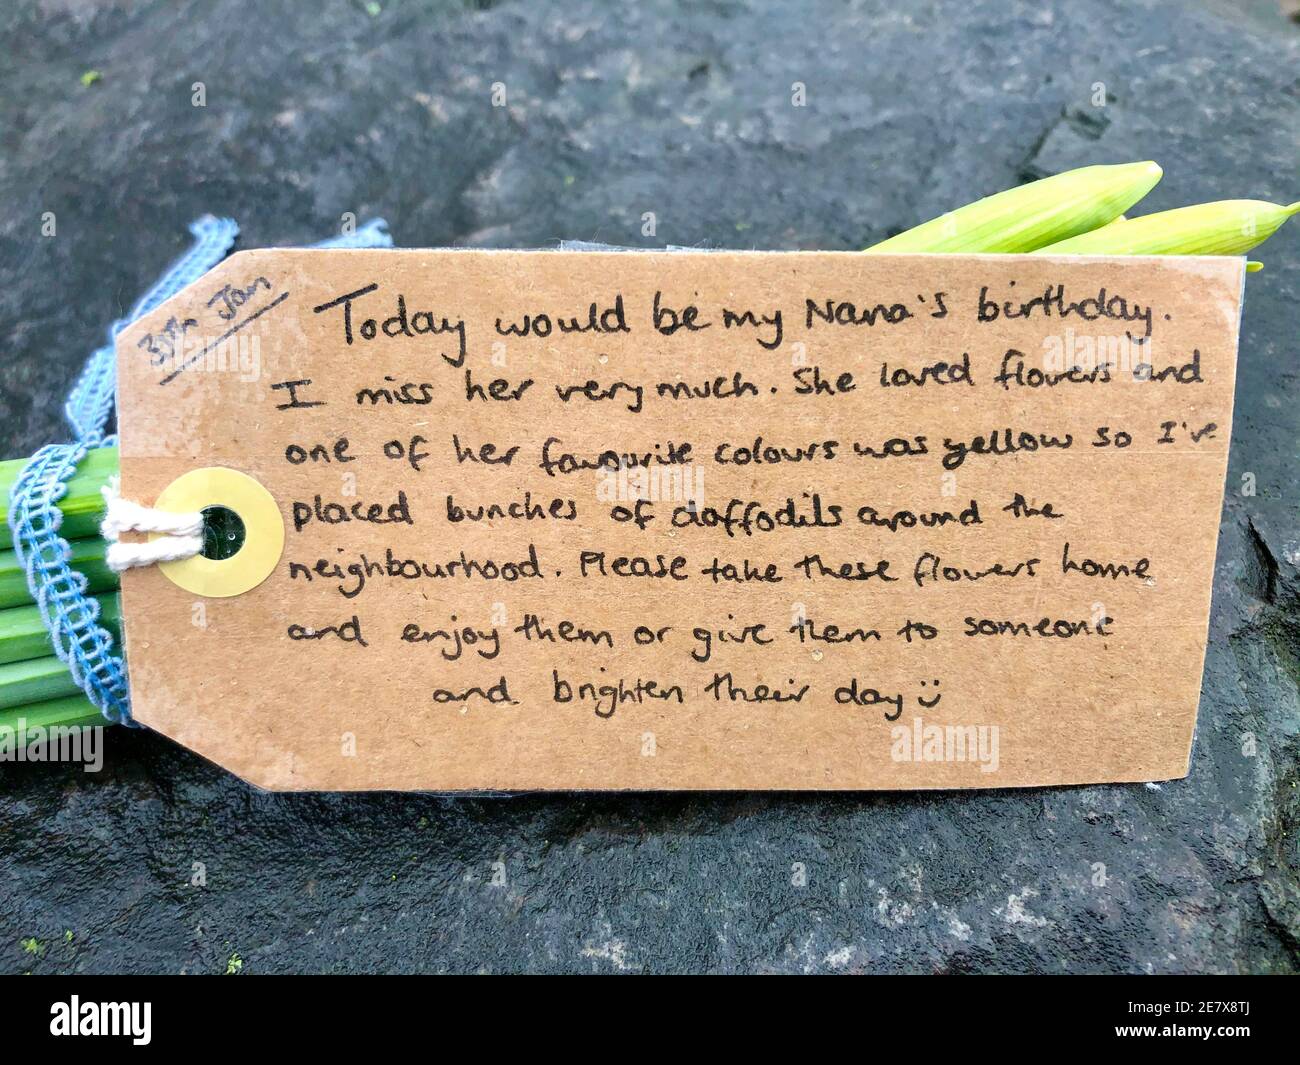 30th Jan
Today would be my Nana's birthday.
I miss her very much. She loved flowers and
one of her favourite colours was yellow so I've
placed bunches of daffodils around the
neighbourhood. Please take these flowers home
and enjoy them or give them to someone
and brighten their day
alamy
Image ID: 2E7X8TJ
www.alamy.com